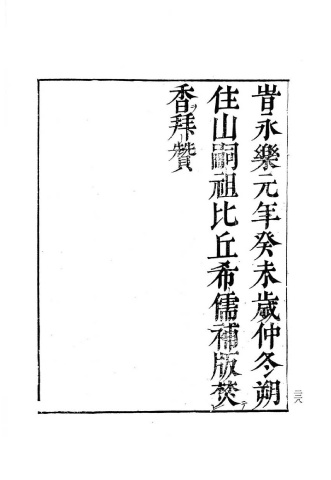 旹永樂元年癸未歲仲冬朔
住山嗣祖比丘希儒補版焚
香拜贊
三六